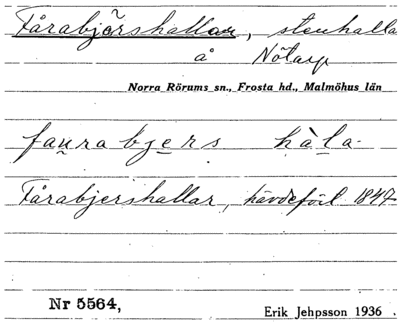 Fårabjörshallar, stenhalla
å Nötarp
Norra Rörums sn., Frosta hd., Malmöhus län
faurabjers hàla-
Fårabjershallar, hävdeförl 1847
Nr 5564,
Erik Jehpsson 1936.